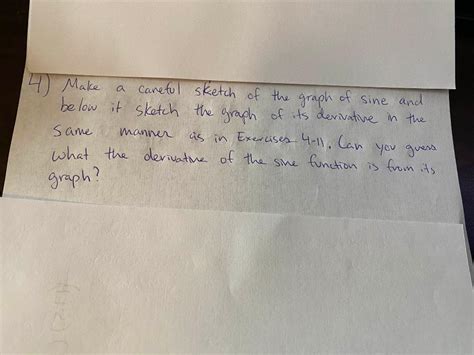 4) Make a careful sketch of the graph of sine and
below it sketch the graph of its derivative in the
same manner as in Exercises 4-11. Can you guess
what the derivative of the sine function is from its
graph?